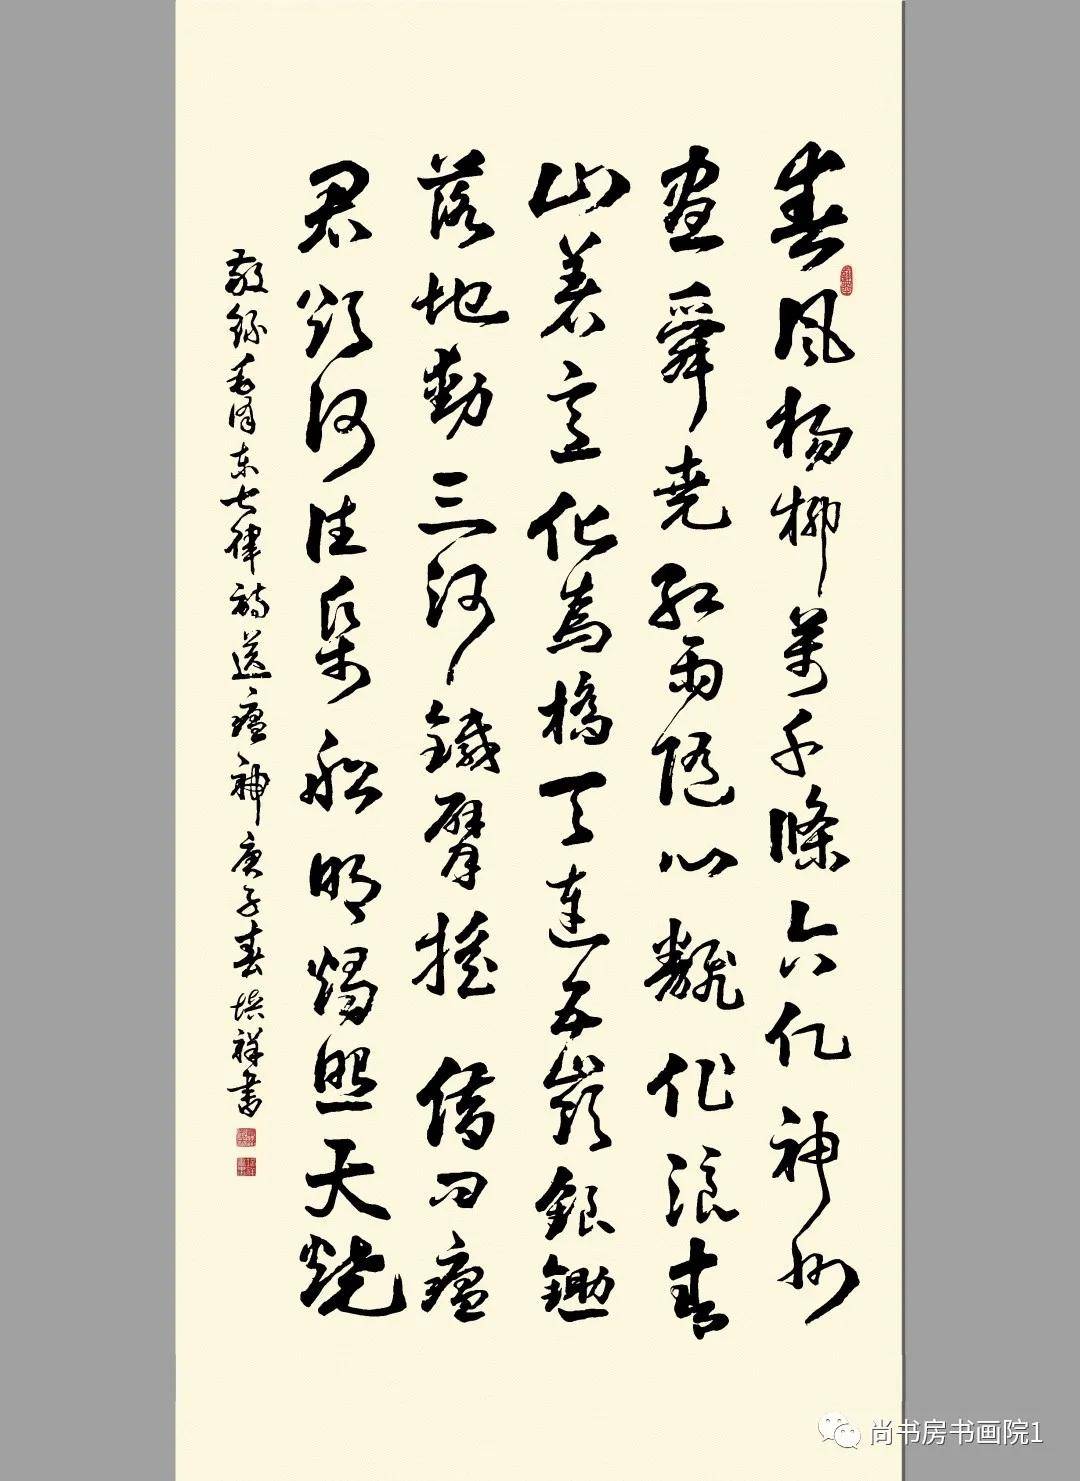 春风杨柳萬千條六亿神州
盡舜尧红雨随心飜作浪青
山着意化為橋天連五嶺銀鋤
落地動三河鐵臂摇借问瘟
君欲何往紙船明烛照天烧
敬錄毛泽东七律诗送瘟神庚子春培祥書
尚书房书画院1